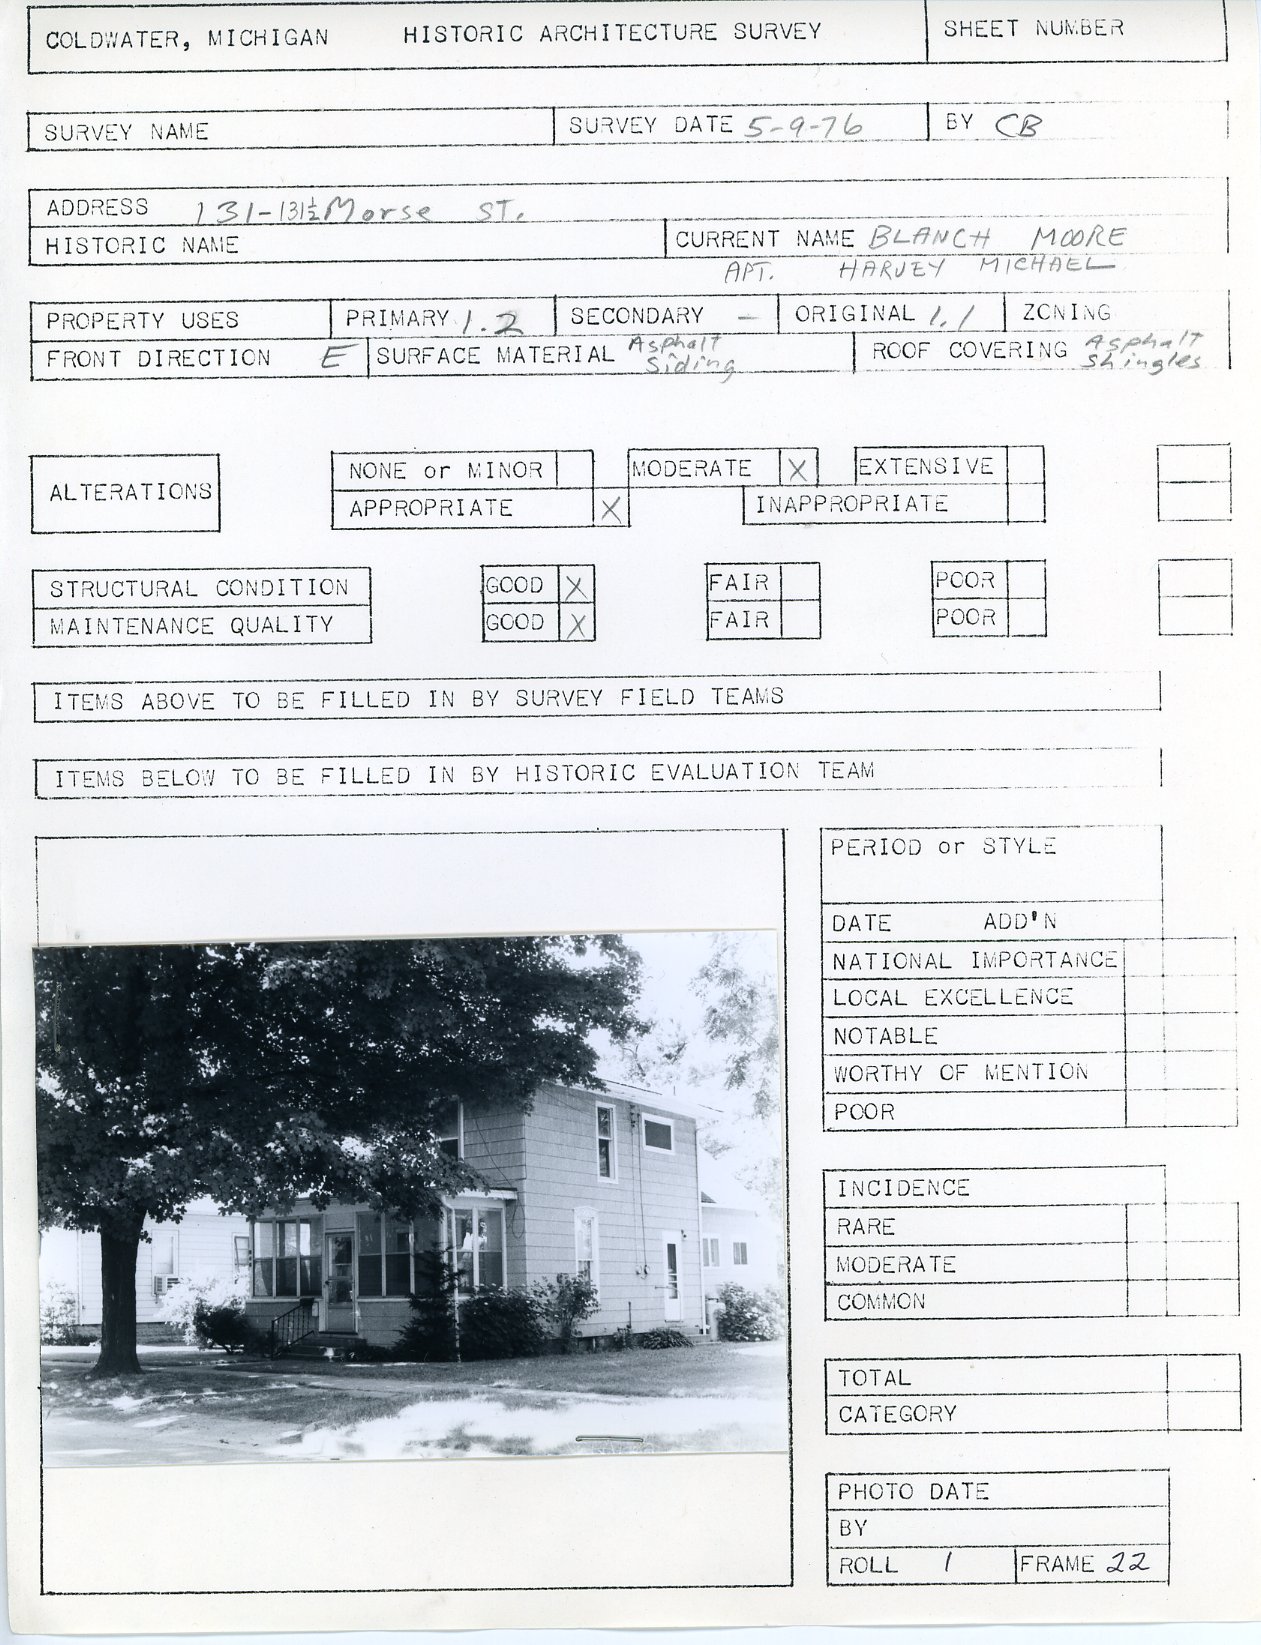 COLDWATER, MICHIGAN HISTORIC ARCHITECTURE SURVEY SHEET NUMBER
SURVEY NAME SURVEY DATE 5-9-76 BY CB
ADDRESS 131-131½ Morse ST.
HISTORIC NAME CURRENT NAME BLANCH MOORE
APT. HARVEY MICHAEL
PROPERTY USES PRIMARY 1.2 SECONDARY - ORIGINAL 1.1 ZONING
FRONT DIRECTION E SURFACE MATERIAL Asphalt Siding ROOF COVERING Asphalt Shingles
ALTERATIONS
NONE or MINOR MODERATE X EXTENSIVE
APPROPRIATE X INAPPROPRIATE
STRUCTURAL CONDITION GOOD X FAIR POOR
MAINTENANCE QUALITY GOOD X FAIR POOR
ITEMS ABOVE TO BE FILLED IN BY SURVEY FIELD TEAMS
ITEMS BELOW TO BE FILLED IN BY HISTORIC EVALUATION TEAM
PERIOD or STYLE
DATE ADD'N
NATIONAL IMPORTANCE
LOCAL EXCELLENCE
NOTABLE
WORTHY OF MENTION
POOR
INCIDENCE
RARE
MODERATE
COMMON
TOTAL
CATEGORY
PHOTO DATE
BY
ROLL 1 FRAME 22